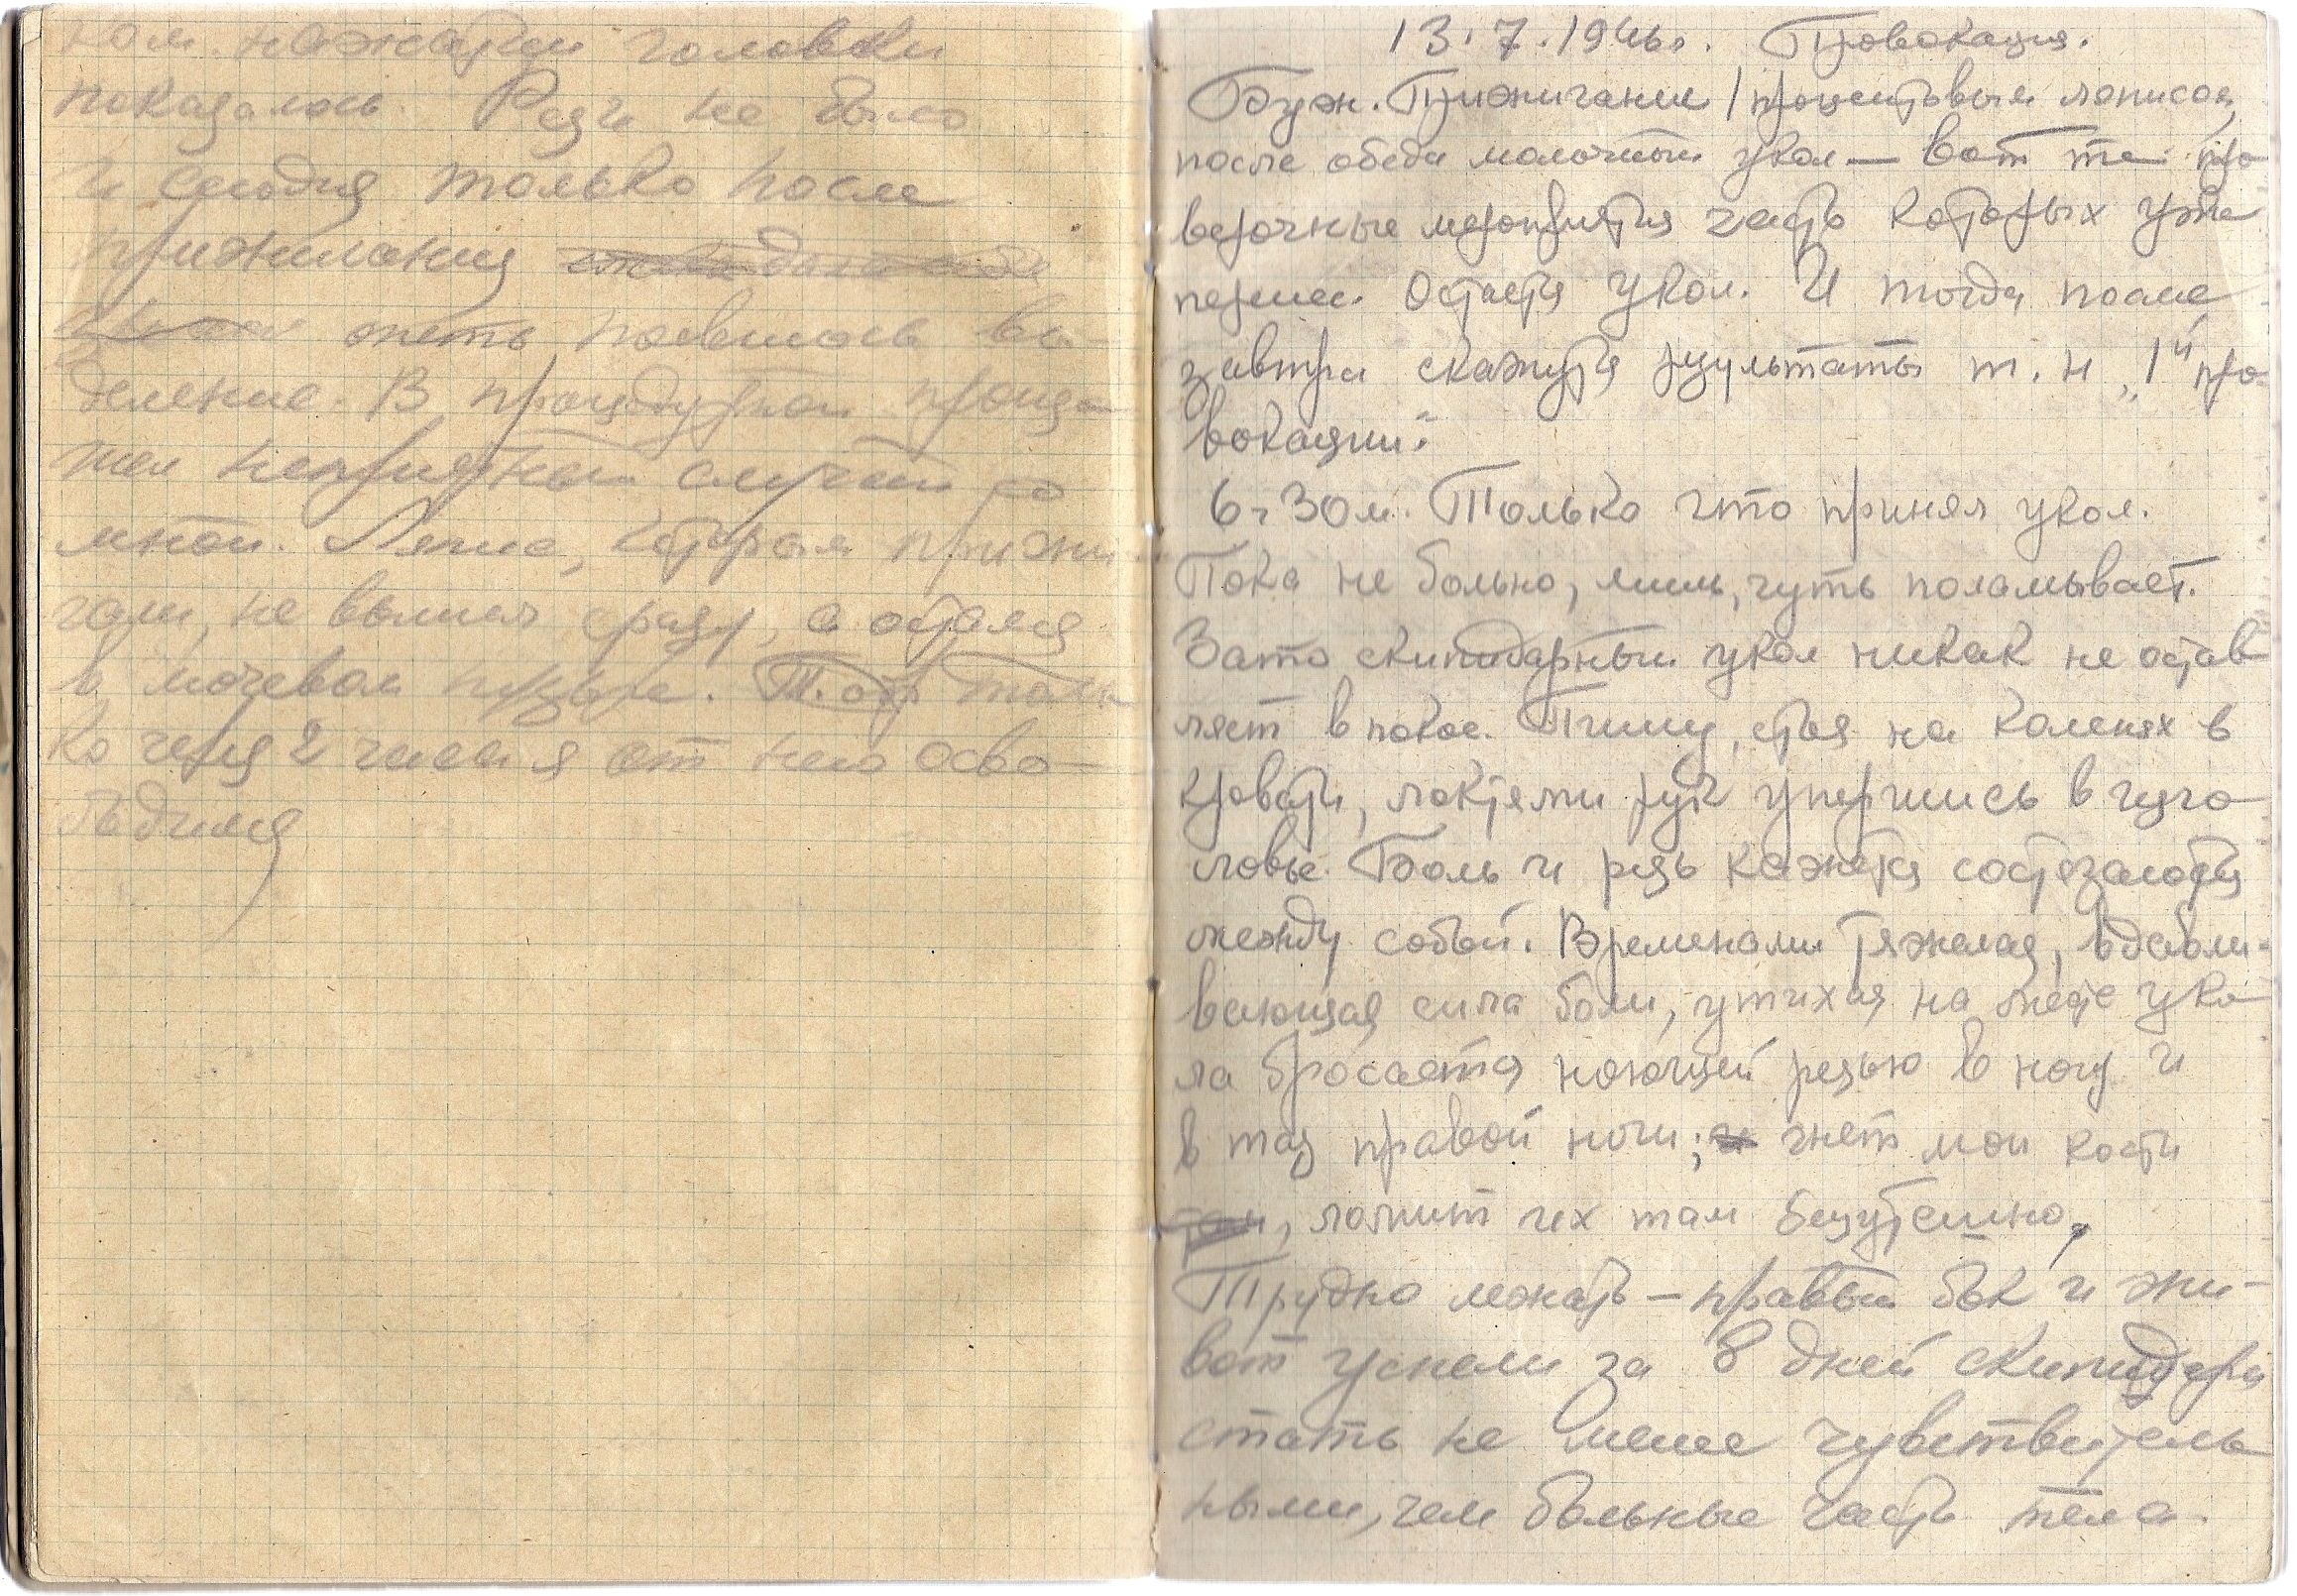 ком. нажатии головки
показалось. Рези не было
и сегодня только после
прижигания
жеть появилось вы-
деление. В процедурной произо
шел неприятный случай со
мной. Ляпис, которым прижи
гали, не вылил сразу, а остался
в мочевом пузыре. Толь
ко через 2 часа я от него осво-
бодился
13.7.1946г. Провокация.
Буж. Прижигание 1 процентовым ляписом,
после обеда молочный укол — вот те про
верочные мероприятия часть которых уже
перенес. Остается укол. И тогда после
завтра скажутся результаты т. н „1й про-
вокации".
6ч 30м. Только что принял укол.
Пока не больно, лишь, чуть поламывает.
Зато скипидарный укол никак не остав
ляет в покое. Пишу, стоя на коленях в
кровати, локтями рук упершись в изго
ловье. Боль и резь кажется состязаются
между собой. Временами тяжелая, вдавли-
вающая сила боли, утихая на месте уко
ла бросается ноющей резью в ногу и
в таз правой ноги; гнет мои кости
, ломит их там безутешно,
Трудно лежать – правый бок и жи-
вот успели за 8 дней скипидара
стать не менее чувствитель
ными, чем больные части тела.